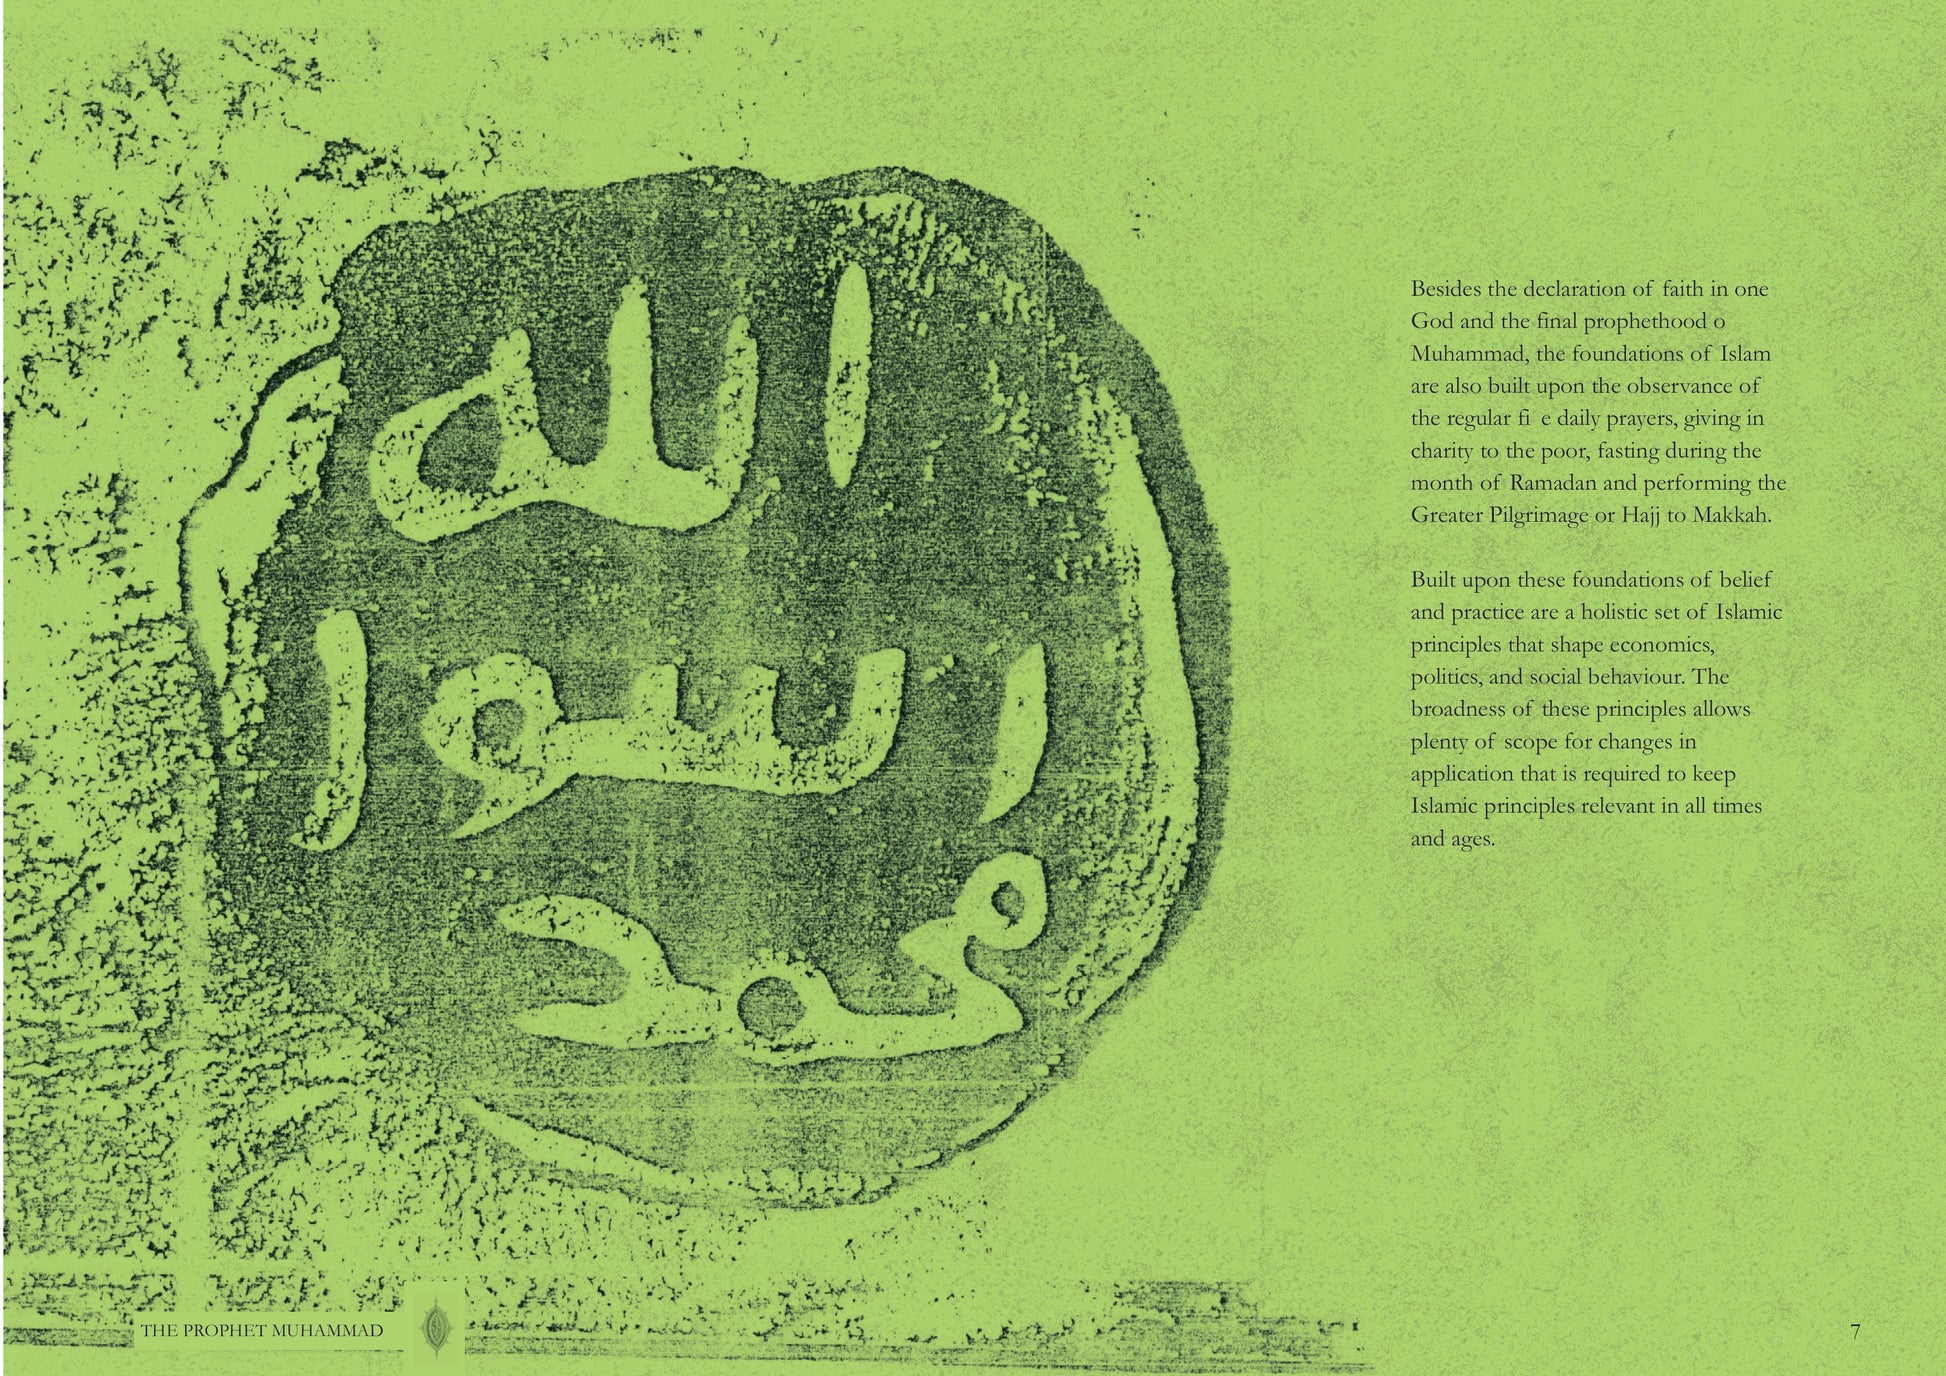 الله
رسول
محمد
Besides the declaration of faith in one
God and the final prophethood o
Muhammad, the foundations of Islam
are also built upon the observance of
the regular fi e daily prayers, giving in
charity to the poor, fasting during the
month of Ramadan and performing the
Greater Pilgrimage or Hajj to Makkah.
Built upon these foundations of belief
and practice are a holistic set of Islamic
principles that shape economics,
politics, and social behaviour. The
broadness of these principles allows
plenty of scope for changes in
application that is required to keep
Islamic principles relevant in all times
and ages.
THE PROPHET MUHAMMAD
7